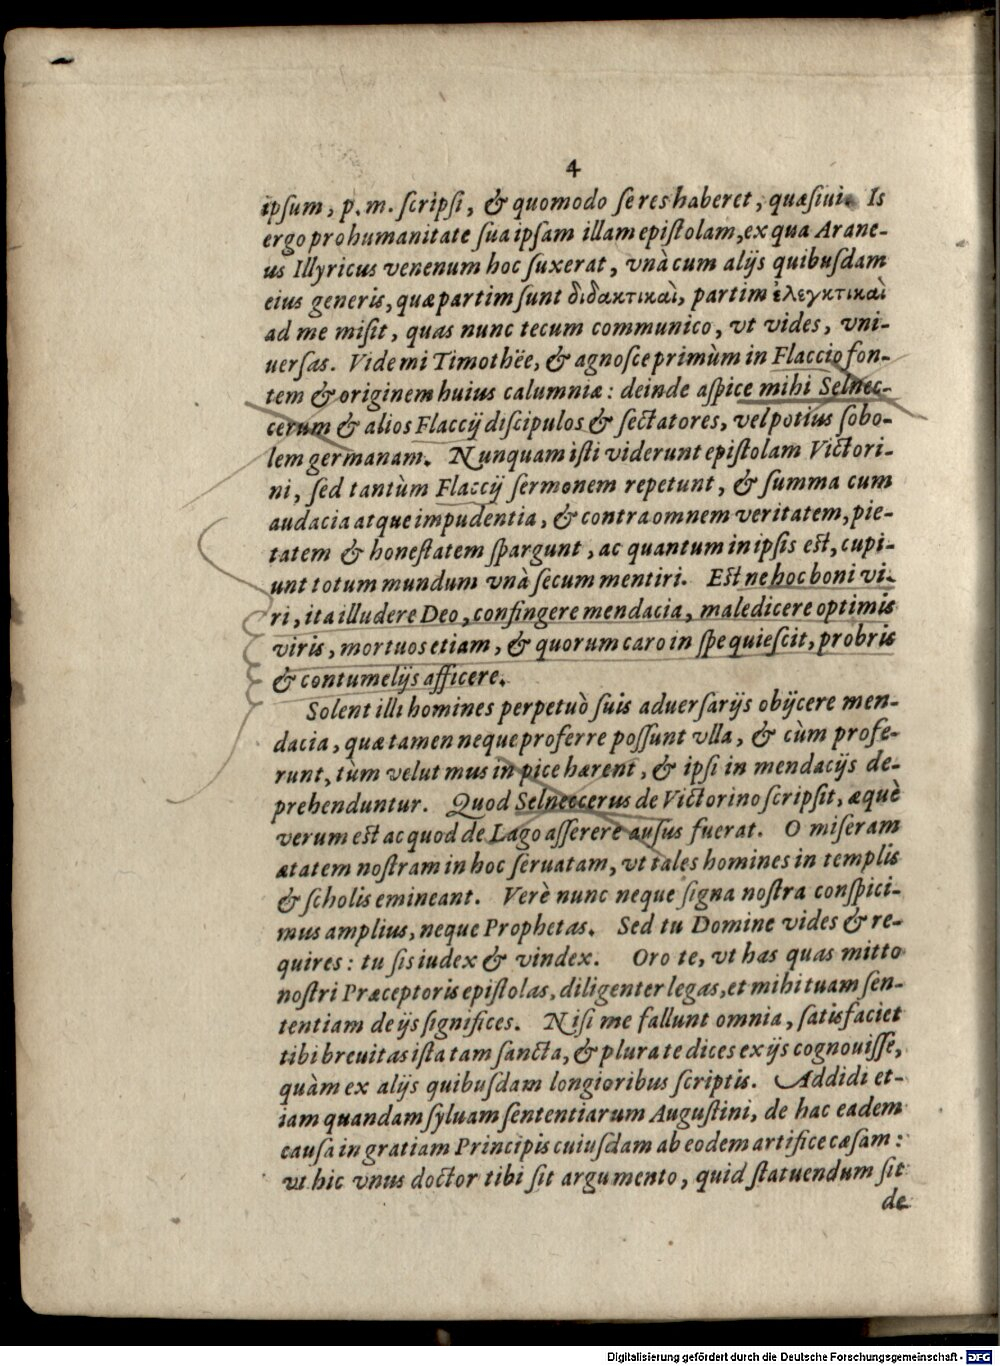 4
ipſum, p. m. ſcripſi, & quomodo ſe res haberet, quæſiui. Is
ergo pro humanitate ſua ipſam illam epiſtolam, ex qua Arane-
us Illyricus venenum hoc ſuxerat, vnà cum alijs quibuſdam
eius generis, quæ partim ſunt διδακτικαὶ, partim ἐλεγκτικαὶ
ad me miſit, quas nunc tecum communico, vt vides, vni-
uerſas. Vide mi Timothëe, & agnoſce primùm in Flaccio fon-
tem & originem huius calumniæ: deinde aſpice mihi Selnec-
cerum & alios Flaccij diſcipulos & ſectatores, vel potius ſobo-
lem germanam. Nunquam iſti viderunt epiſtolam Victori-
ni, ſed tantùm Flaccij ſermonem repetunt, & ſumma cum
audacia atque impudentia, & contra omnem veritatem, pie-
tatem & honeſtatem ſpargunt, ac quantum in ipſis eſt, cupi-
unt totum mundum vnà ſecum mentiri. Eſt ne hoc boni vi-
ri, ita illudere Deo, confingere mendacia, maledicere optimis
viris, mortuos etiam, & quorum caro in ſpe quieſcit, probris
& contumelijs afficere.
Solent illi homines perpetuò ſuis aduerſarijs obijcere men-
dacia, quæ tamen neque proferre poſſunt vlla, & cùm profe-
runt, tùm velut mus in pice hærent, & ipſi in mendacijs de-
prehenduntur. Quod Selneccerus de Victorino ſcripſit, æquè
verum eſt ac quod de Lago aſſerere auſus fuerat. O miſeram
ætatem noſtram in hoc ſeruatam, vt tales homines in templis
& ſcholis emineant. Verè nunc neque ſigna noſtra conſpici-
mus amplius, neque Prophetas. Sed tu Domine vides & re-
quires: tu ſis iudex & vindex. Oro te, vt has quas mitto
noſtri Præceptoris epiſtolas, diligenter legas, et mihi tuam ſen-
tentiam de ijs ſignifices. Niſi me fallunt omnia, ſatisfaciet
tibi breuitas iſta tam ſancta, & plura te dices ex ijs cognouiſſe,
quàm ex alijs quibuſdam longioribus ſcriptis. Addidi et-
iam quandam ſyluam ſententiarum Auguſtini, de hac eadem
cauſa in gratiam Principis cuiuſdam ab eodem artifice cæſam:
vt hic vnus doctor tibi ſit argumento, quid ſtatuendum ſit
de
Digitalisierung gefördert durch die Deutsche Forschungsgemeinschaft - DFG